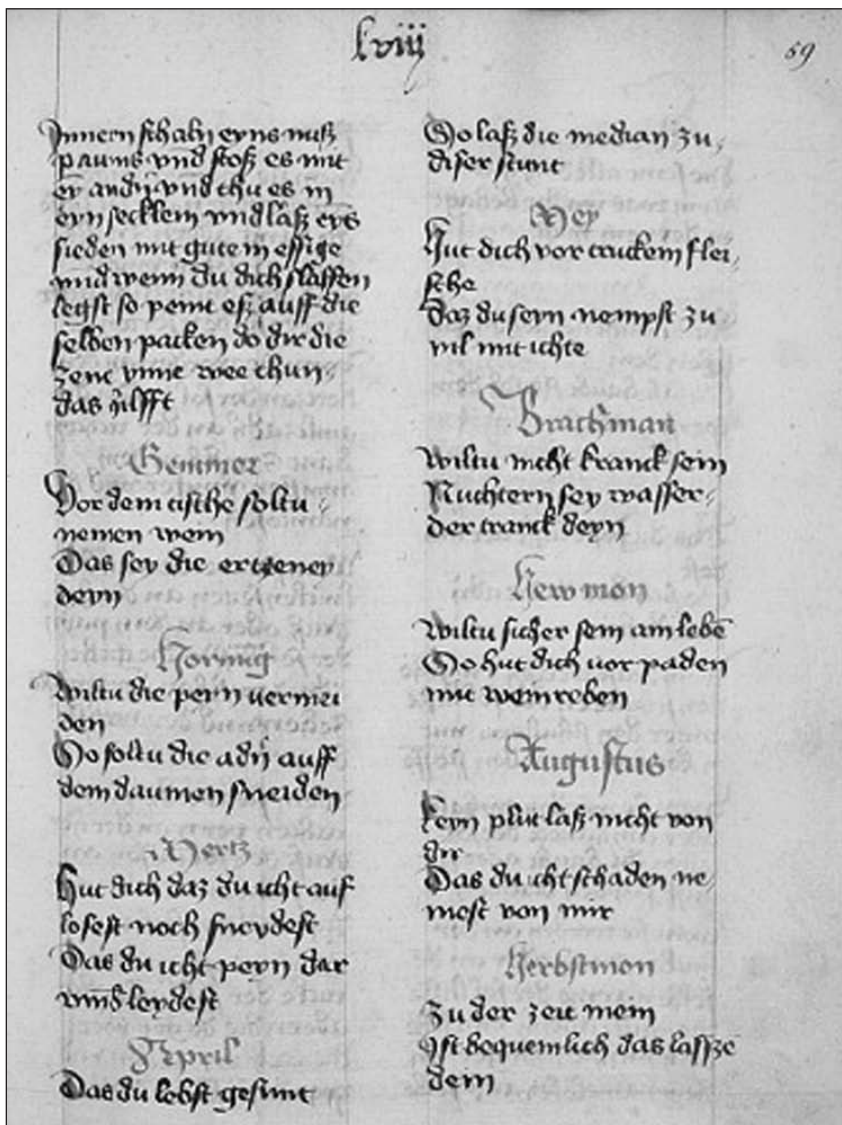 lviij
59
Innern schaln eyns nuß
paums vnd stoß es mit
eyn secklein vnd laß eyns
sieden mit gutem essige
vnd wenn du dich slaffen
legst so pint eß auff die
selben packen do dir die
zene ynne wee thun
das hilfft
Genner
Vor dem tische soltu
nemen wein
Das sey die ertzeney
deyn
Hornug
Wiltu die peyn vermei
den
So soltu die adern auff
dem daumen sneiden
Mertz
Hut dich daz du icht auf
losest noch sneydest
Das du icht peyn dar
vmb leydest
April
Das du lebst gesunt
So laß die median zu
diser stunt
Mey
Hut dich vor truckem flei
sche
Daz du seyn nempst zu
vil mit ichte
Brachman
Wiltu nicht kranck sein
Nuchtern sey wasser
der tranck deyn
Hewmon
Wiltu sicher sein am lebē
So hut dich vor paden
mit weinreben
Augustus
Keyn plut laß nicht von
dir
Das du icht schaden ne
mest von mir
Herbstmon
Zu der zeit mein
Ist bequemlich das lassze
dein